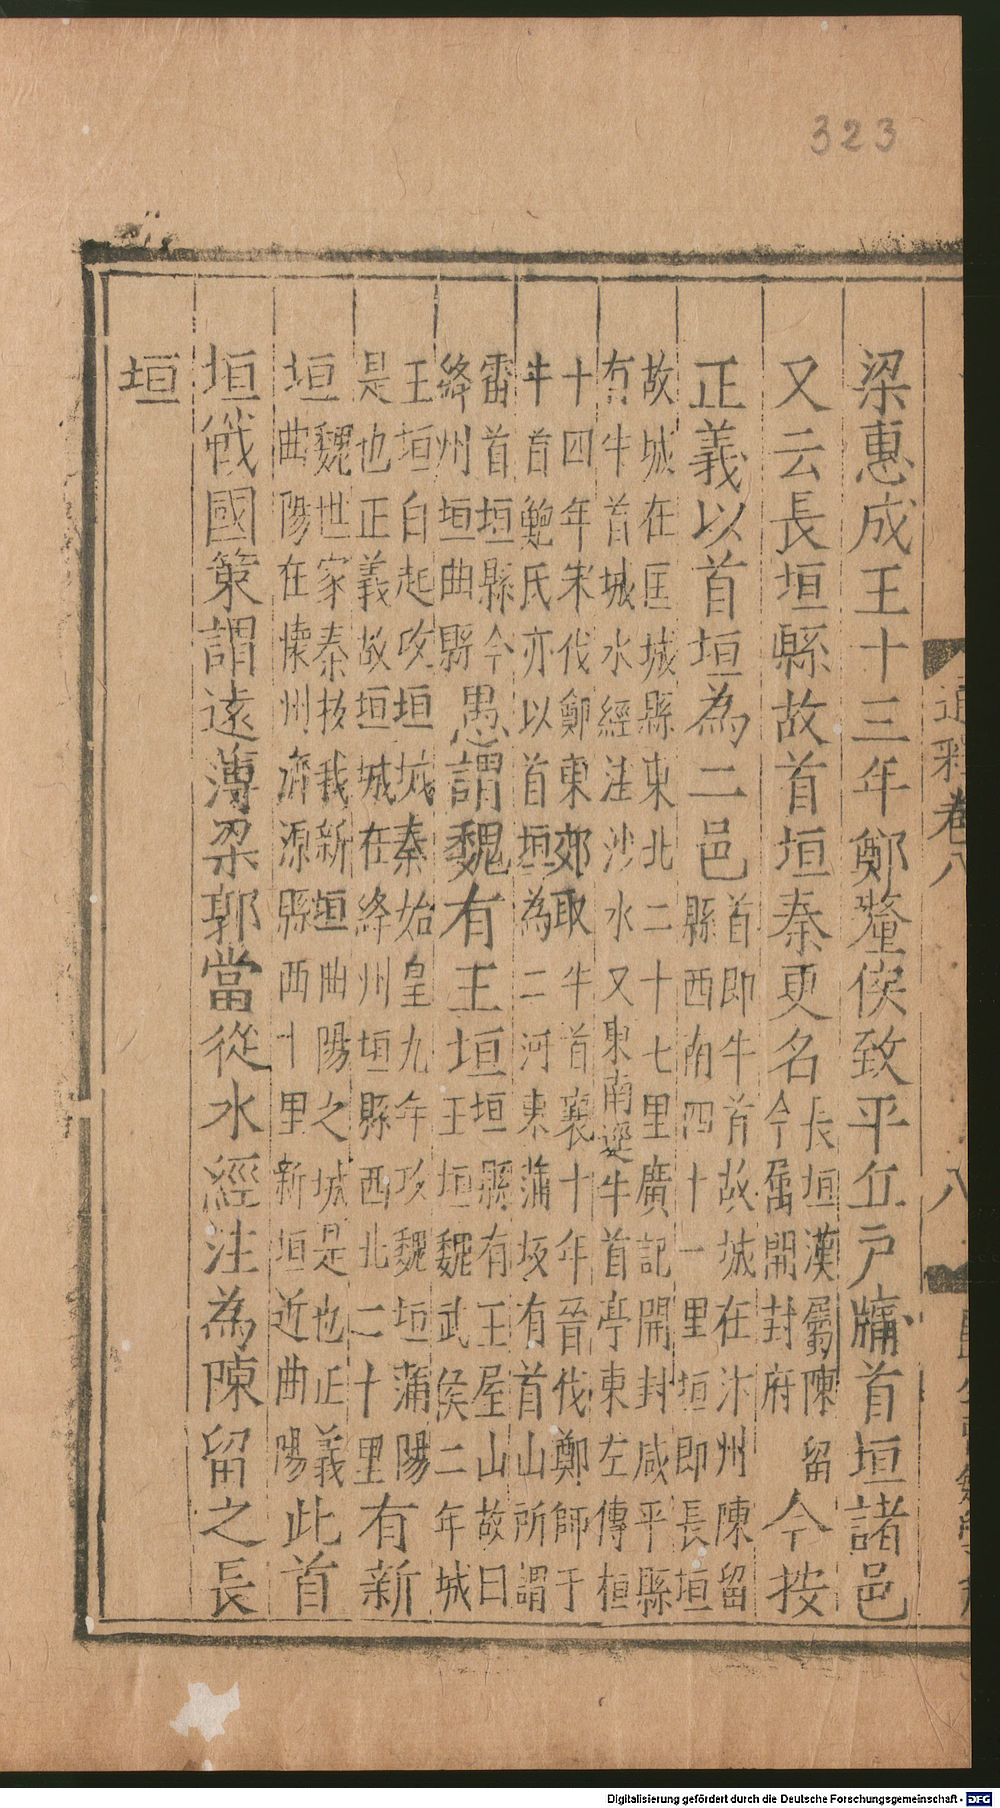 323
梁惠成王十三年鄭釐侯致平丘戶牖首垣諸邑
又云長垣縣故首垣秦更名長垣漢屬陳留今屬開封府今按
正義以首垣為二邑首即牛首故城在汴州陳留縣西南四十一里垣即長垣
故城在匡城縣東北二十七里廣記開封咸平縣有牛首城水經注沙水又東南逕牛首亭東左傳桓
十四年宋伐鄭東郊取牛首襄十年晉伐鄭師于牛首鮑氏亦以首垣為二河東蒲坂有首山所謂
雷首垣縣今絳州垣曲縣愚謂魏有王垣垣縣有王屋山故曰王垣魏武侯二年城
王垣白起攻垣城秦始皇九年攻魏垣蒲陽是也正義故垣城在絳州垣縣西北二十里有新
垣魏世家秦拔我新垣曲陽之城是也正義曲陽在懷州濟源縣西十里新垣近曲陽此首
垣戰國策謂遠薄梁郭當從水經注為陳留之長
垣
通釋卷八
八
Digitalisierung gefördert durch die Deutsche Forschungsgemeinschaft - DFG